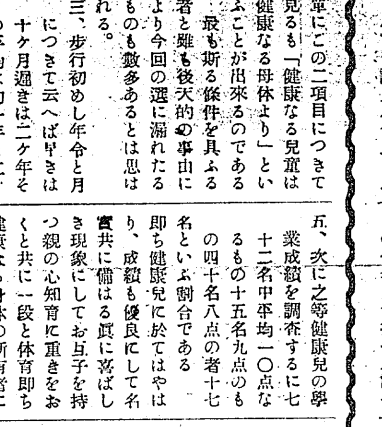 單にこの二項目につきて
見るも「健康なる兒童は
健康なる母体より」とい
ふことが出來るのである
最も斯る條件を具ふる
者と雖も後天的の事由に
より今回の選に漏れたる
ものも數多あるとは思は
れる。
三、步行初めし年令と月
につきて云へば早きは
十ヶ月遲きは二ケ年そ
五、次に之等健康兒の學
業成績を調査するに七
十二名中平均一〇点な
るもの十五名九点のも
の四十名八点の者十七
名といふ割合である
即ち健康兒に於てはやは
り、成績も優良にして名
實共に備はる眞に喜ばし
き現象にしてお互子を持
つ親の心知育に重きをお
くと共に一段と体育即ち